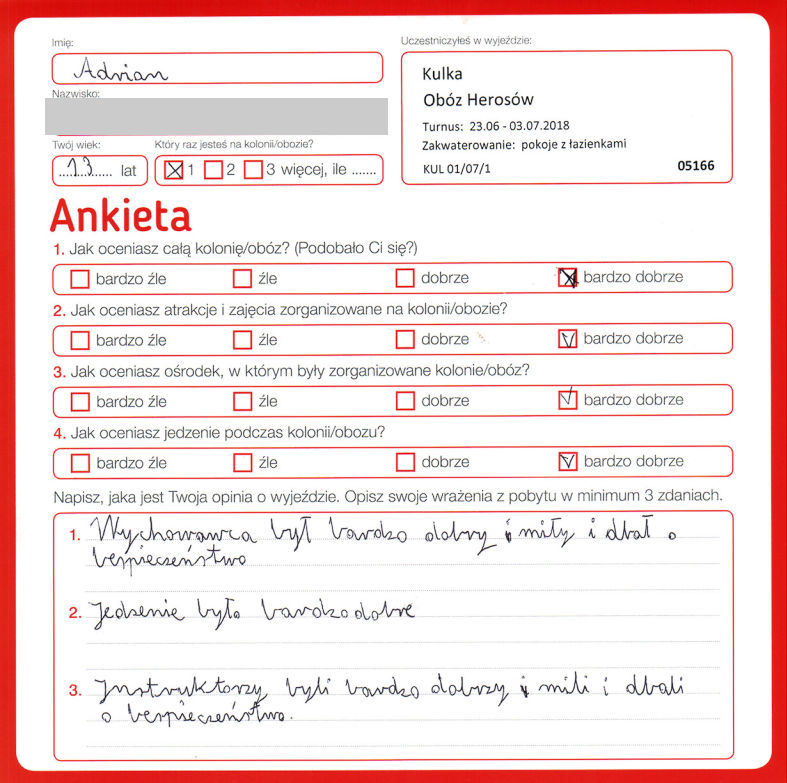 Imię:
Uczestniczyłeś w wyjeździe:
Adrian
Kulka
Obóz Herosów
Nazwisko:
Turnus: 23.06 - 03.07.2018
Zakwaterowanie: pokoje z łazienkami
KUL 01/07/1 05166
Twój wiek: Który raz jesteś na kolonii/obozie?
13 lat 1 2 3 więcej, ile .......
Ankieta
1. Jak oceniasz całą kolonię/obóz? (Podobało Ci się?)
bardzo źle źle dobrze bardzo dobrze
2. Jak oceniasz atrakcje i zajęcia zorganizowane na kolonii/obozie?
bardzo źle źle dobrze bardzo dobrze
3. Jak oceniasz ośrodek, w którym były zorganizowane kolonie/obóz?
bardzo źle źle dobrze bardzo dobrze
4. Jak oceniasz jedzenie podczas kolonii/obozu?
bardzo źle źle dobrze bardzo dobrze
Napisz, jaka jest Twoja opinia o wyjeździe. Opisz swoje wrażenia z pobytu w minimum 3 zdaniach.
1. Wychowawca był bardzo dobry i miły i dbał o
bezpieczeństwo
2. Jedzenie było bardzo dobre
3. Instruktorzy byli bardzo dobrzy i mili i dbali
o bezpieczeństwo.